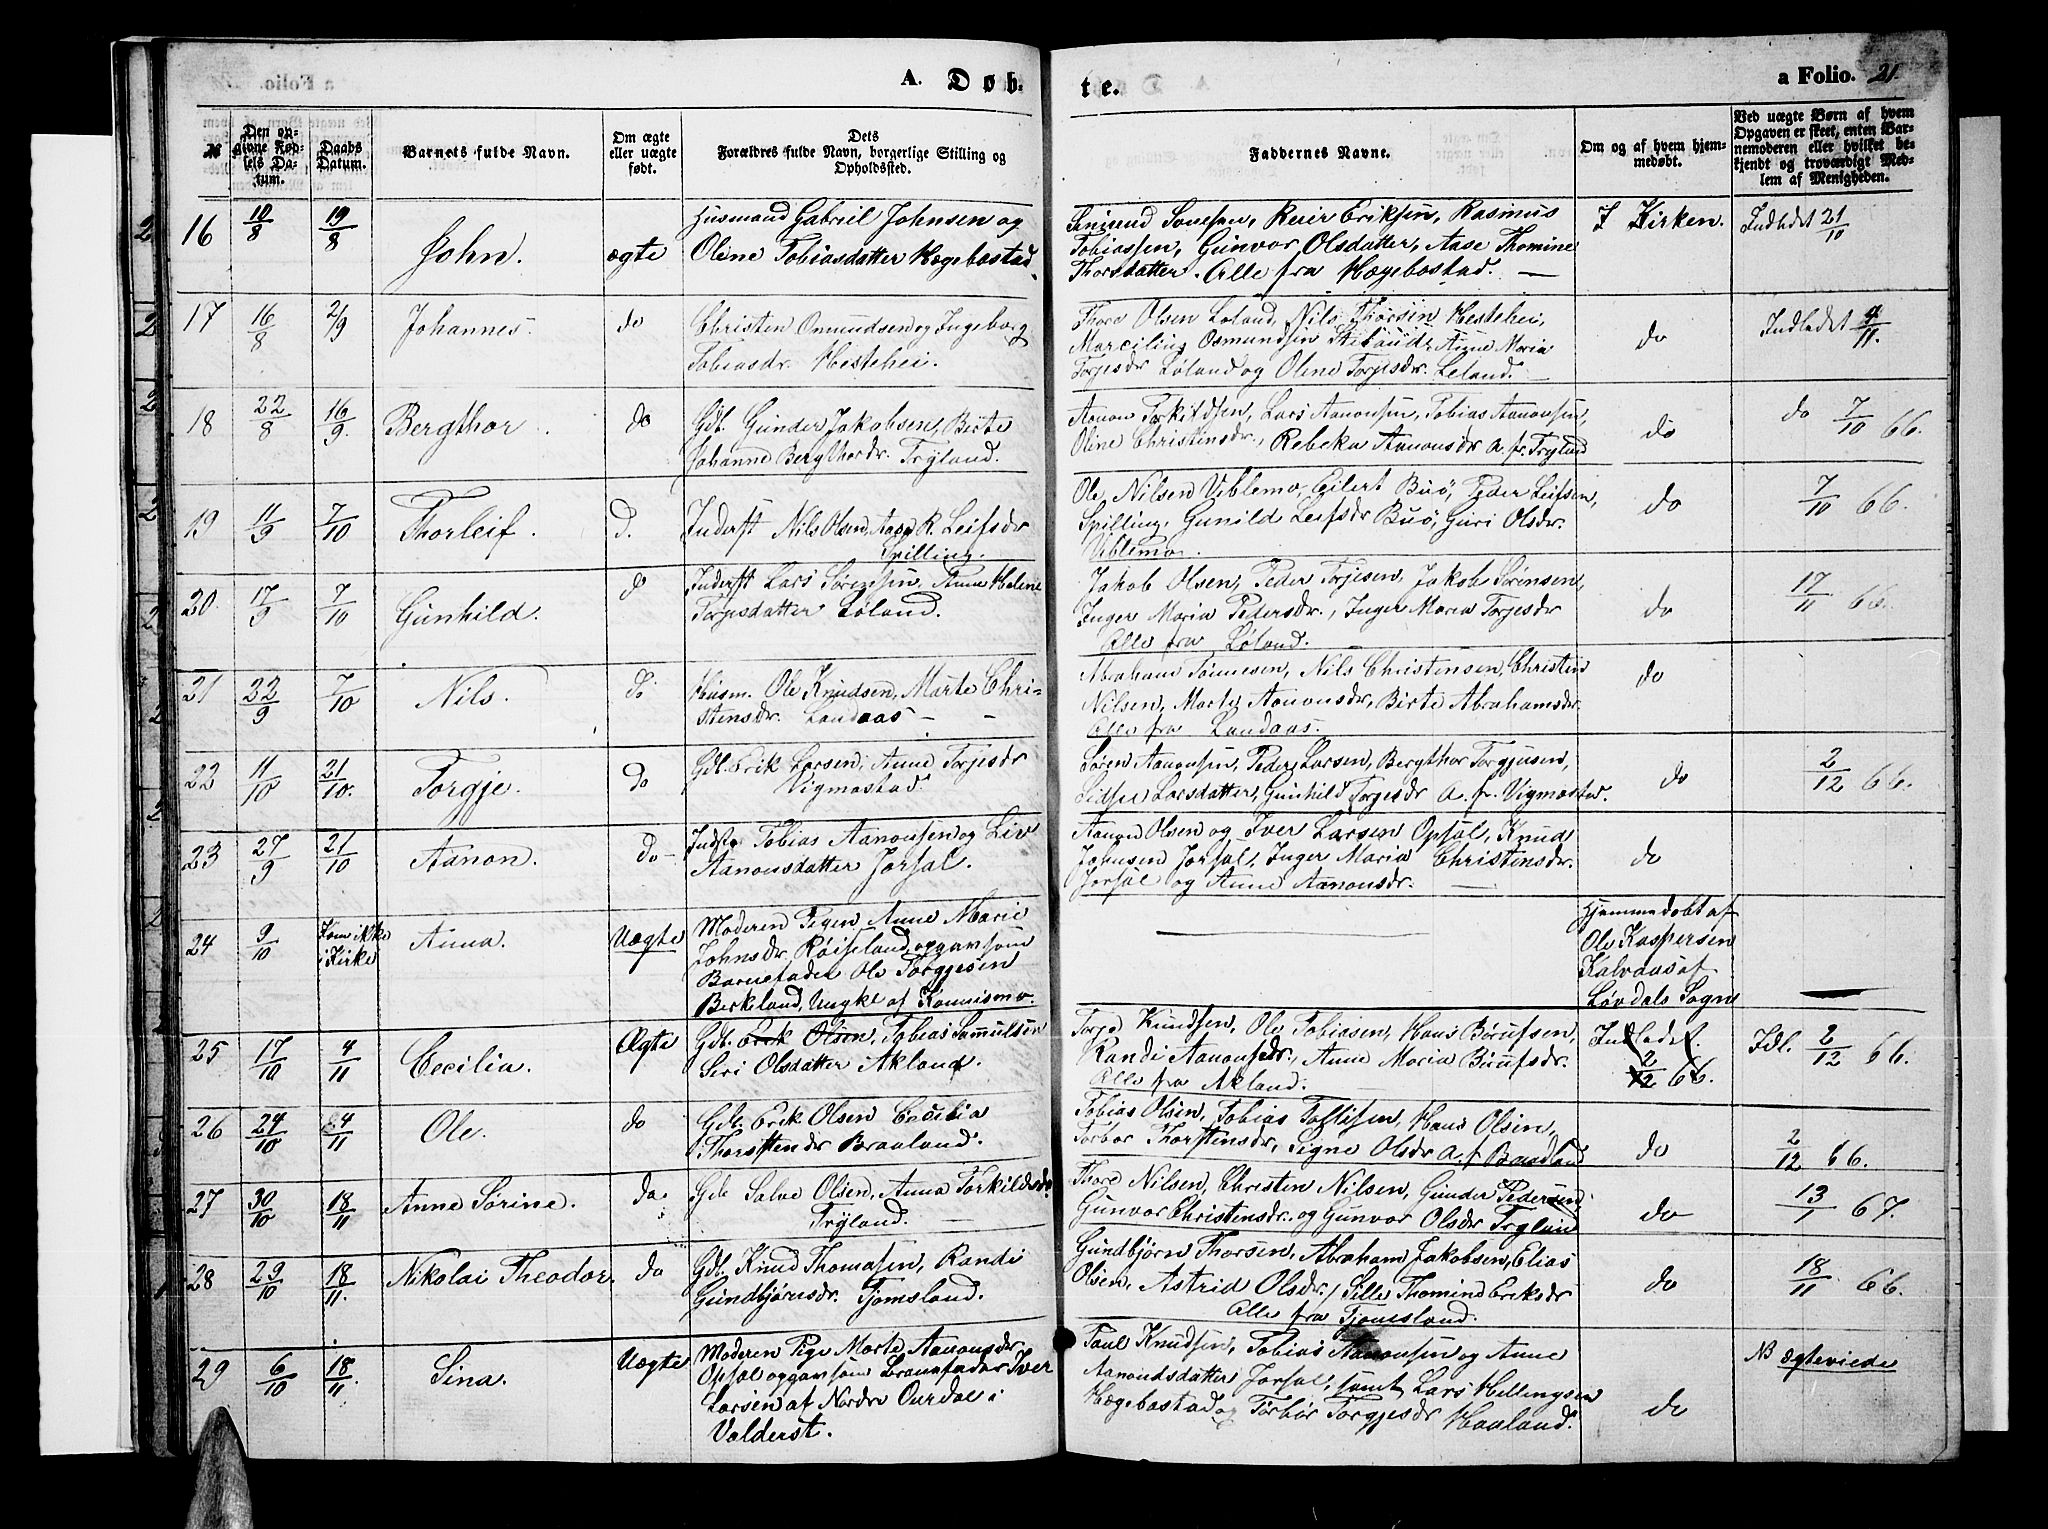 A. Døb-
te.
a Folio. 21.
№
Den op-
givne Fød-
sels Da-
tum.
Daabs
Datum.
Barnets fulde Navn.
Om ægte
eller uægte
født.
Dets
Forældres fulde Navn, borgerlige Stilling og
Opholdssted.
Faddernes Navne.
Om og af hvem hjem-
medøbt.
Ved uægte Børn af hvem
Opgaven er skeet, enten Bar-
nemoderen eller hvilket be-
kjendt og troværdigt Med-
lem af Menigheden.
16 10/8 19/8 John. ægte
Husmand Gabriel Johnsen og
Oline Tobiasdatter Hægebostad.
Rasmus
Tobiassen, Gunvor Olsdatter, Aase Thomine
Thorsdatter. Alle fra Hægebostad. —
I Kirken. Indledet 21/10
17 16/8 2/9 Johannes. do
Christen Onmundsen og Ingeborg
Tobiasdr. Hestehei.
Thore Olsen Løland, Nils Thorsen Hestehei,
Osmundsen Anne Maria
Torjesdr Løland og Oline Torjesdr. Løland. —
do Indledet 4/11.
18 22/8 16/9. Bergthor. do
Gdb. Gunder Jakobsen, Birte
Johanne Bergthordr. Tryland.
Aanon Torkildsen, Lars Aanonsen, Tobias Aanonsen,
Oline Christensdr., Rebeka Aanonsdr A. fr. Tryland
do do 7/10 66.
19 11/9 7/10 Thorleif. d.
Inderst Nils Olsen, Aase R. Leifsdr
Spilling.
Ole Nilsen Viblemo, Eilert Buø, Peder Leifsen,
Spilling, Gunild Leifsdr Buø, Guri Olsdr.
Viblemo.
do 7/10 66.
20. 17/9 7/10 Gunhild. d
Inderst Lars Sørensen, Anne Helene
Torjesdatter Løland.
Jakob Olsen, Peder Torjesen, Jakob Sørensen,
Inger Maria Pedersdr., Inger Maria Torjesdr
Alle fra Løland.
do 17/11 66.
21 22/9 7/10 Nils. do
Husm. Ole Knudsen, Marte Chri-
stensdr. Landaas — —
Abraham Tønnesen, Nils Christensen, Christen
Nilsen, Marte Aanonsdr, Birte Abrahamsdr.
Alle fra Landaas.
do
22 11/10 21/10. Torgje. do
Gdb. Erik Larsen, Anne Torjesdr
Vigmostad.
Søren Aanonsen, Peder Larsen, Bergthor Torgjusen,
Larsdatter, Gunhild Torjesdr A. fr. Vigmostad.
do 2/12 66.
23 27/9 21/10 Aanon. do—
Indst. Tobias Aanonsen og Liv
Aanonsdatter Jorsal.
Aanon Olsen og Iver Larsen Opsal, Knud
Johnsen Jorsal, Inger Maria Christensdr.
Jorsal og Anne Aanonsdr. —
do
24 9/10 Kom ikke
i Kirke
Anna. Uægte
Moderen Pigen Anne Marie
Johnsdr. Røiseland, opgav som
Barnefader Ole Torgjesen
Birkeland, Ungkl af Konnismo.
Hjemmedøbt af
Ole Kaspersen
Kalvaas af
Løvdals Sogn
25 17/10 4/11 Cecilia. Ægte
Gdb. Erik Olsen, Tobias Samuelsen
Siri Olsdatter Akland.
Torje Knudsen, Ole Tobiasen, Hans
Randi Aanonsdr., Anne Maria
Alle fra Akland.
Indledet.
2/12 66.
Idl. 2/12 66.
26 24/10 4/11 Ole. do
Gdb. Erik Olsen Cecilia
Thorstensdr Braaland.
Tobias Olsen, Tobias Hans Olsen,
Torbor Thorstensdr, Signe Olsdr A. f Braaland
do 2/12 66.
27 30/10 18/11 Anne Sørine. do
Gdb Salve Olsen, Anna Torkildsdr
Tryland. —
Thore Nilsen, Christen Nilsen, Gunder Pedersen,
Gunvor Christensdr. og Gunvor Olsdr Tryland
do 13/1 67.
28 29/10 18/11. Nikolai Theodor. do
Gdb. Knud Thomasen, Randi
Gundbjørnsdr. Tjomsland.
Gundbjørn Thorsen, Abraham Jakobsen, Elias
Olsen, Astrid Olsdr., Sille Thomine Eriksdr
Alle fra Tjomsland.
do 18/11 66.
29 6/10 18/11. Sina. Uægte
Moderen Pige Marte Aanonsdr
Opsal opgav som Barnefader Iver
Larsen af Nordre Ourdal i
Valderst.
Paul Knudsen, Tobias Aanonsen og Anne
Aanondsdatter Jorsal, samt Lars Hellingsen
Hægebostad og Torbør Torgjesdr Haaland.
do NB ægteviede